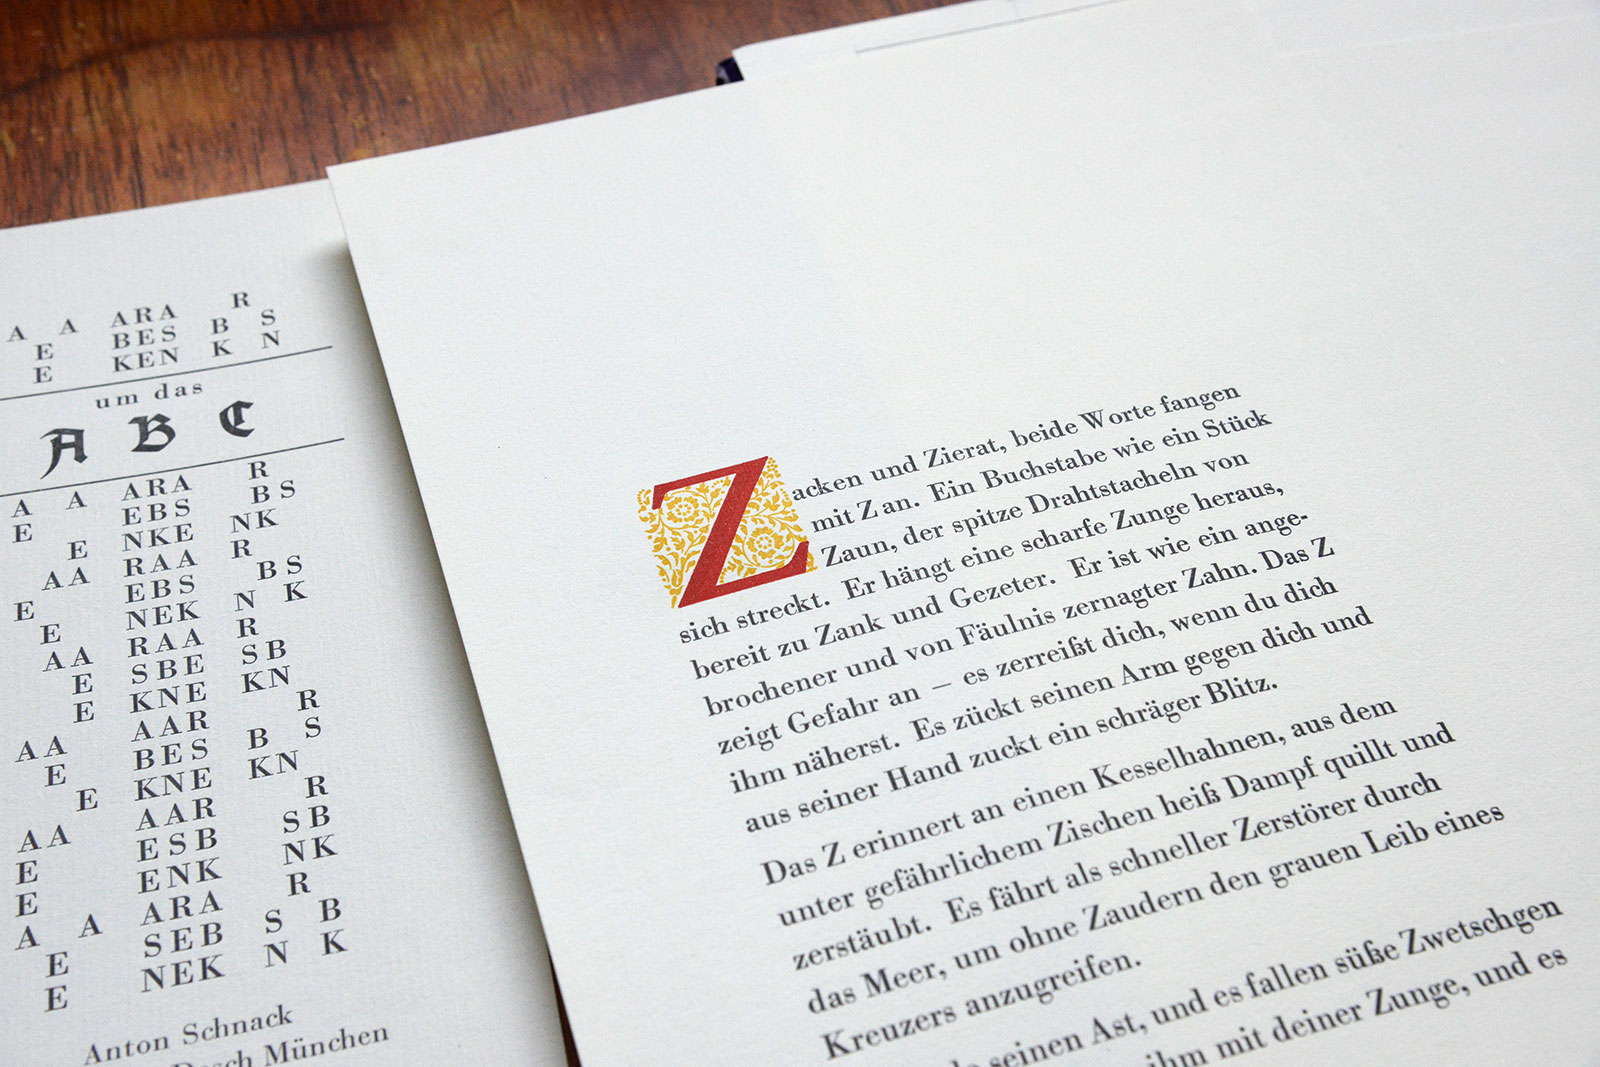 A A ARA R
E BES B S
E KEN K N
um das
A B C
A A ARA R
E EBS BS
E NKE NK
AA RAA R
E EBS BS
E NEK N K
AA RAA R
E SBE SB
E KNE KN
AA AAR R
E BES B S
E KNE KN
AA AAR R
E ESB SB
E ENK NK
A A ARA R
E SEB S B
E NEK N K
Anton Schnack
Desch München
Zacken und Zierat, beide Worte fangen
mit Z an. Ein Buchstabe wie ein Stück
Zaun, der spitze Drahtstacheln von
sich streckt. Er hängt eine scharfe Zunge heraus,
bereit zu Zank und Gezeter. Er ist wie ein ange-
brochener und von Fäulnis zernagter Zahn. Das Z
zeigt Gefahr an – es zerreißt dich, wenn du dich
ihm näherst. Es zückt seinen Arm gegen dich und
aus seiner Hand zuckt ein schräger Blitz.
Das Z erinnert an einen Kesselhahnen, aus dem
unter gefährlichem Zischen heiß Dampf quillt und
zerstäubt. Es fährt als schneller Zerstörer durch
das Meer, um ohne Zaudern den grauen Leib eines
Kreuzers anzugreifen.
seinen Ast, und es fallen süße Zwetschgen
ihm mit deiner Zunge, und es